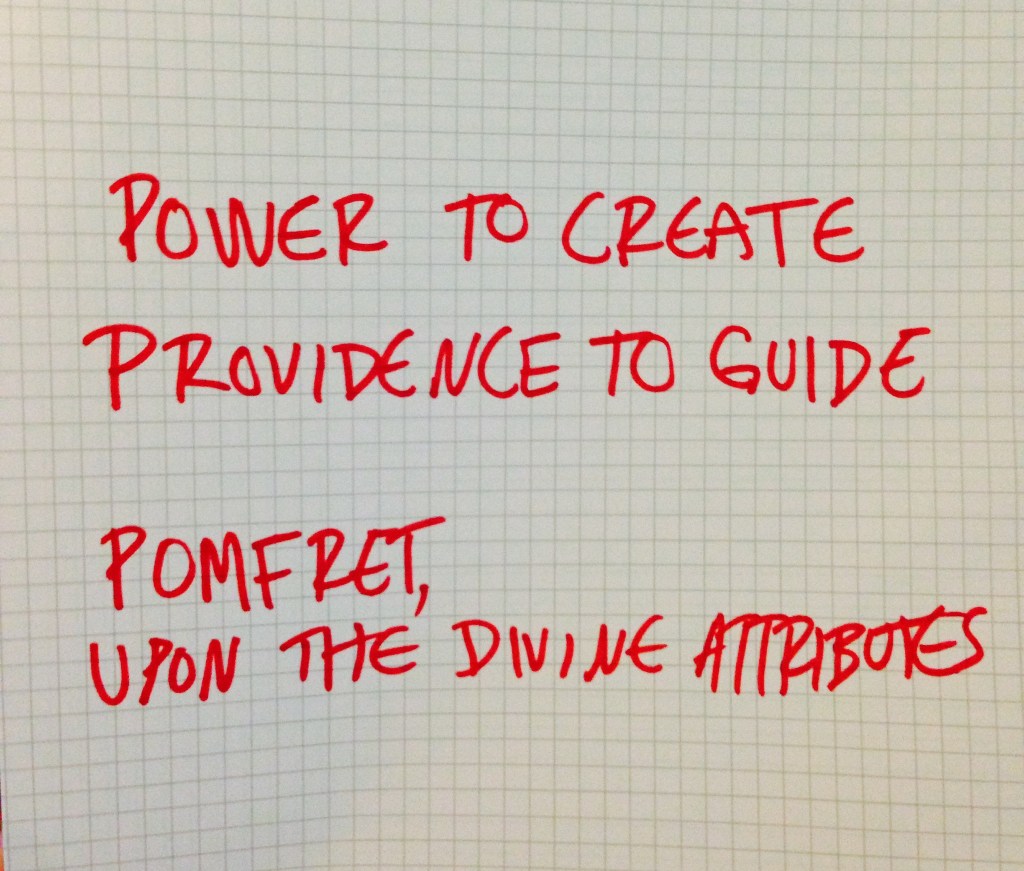 POWER TO CREATE
PROVIDENCE TO GUIDE
POMFRET,
UPON THE DIVINE ATTRIBUTES